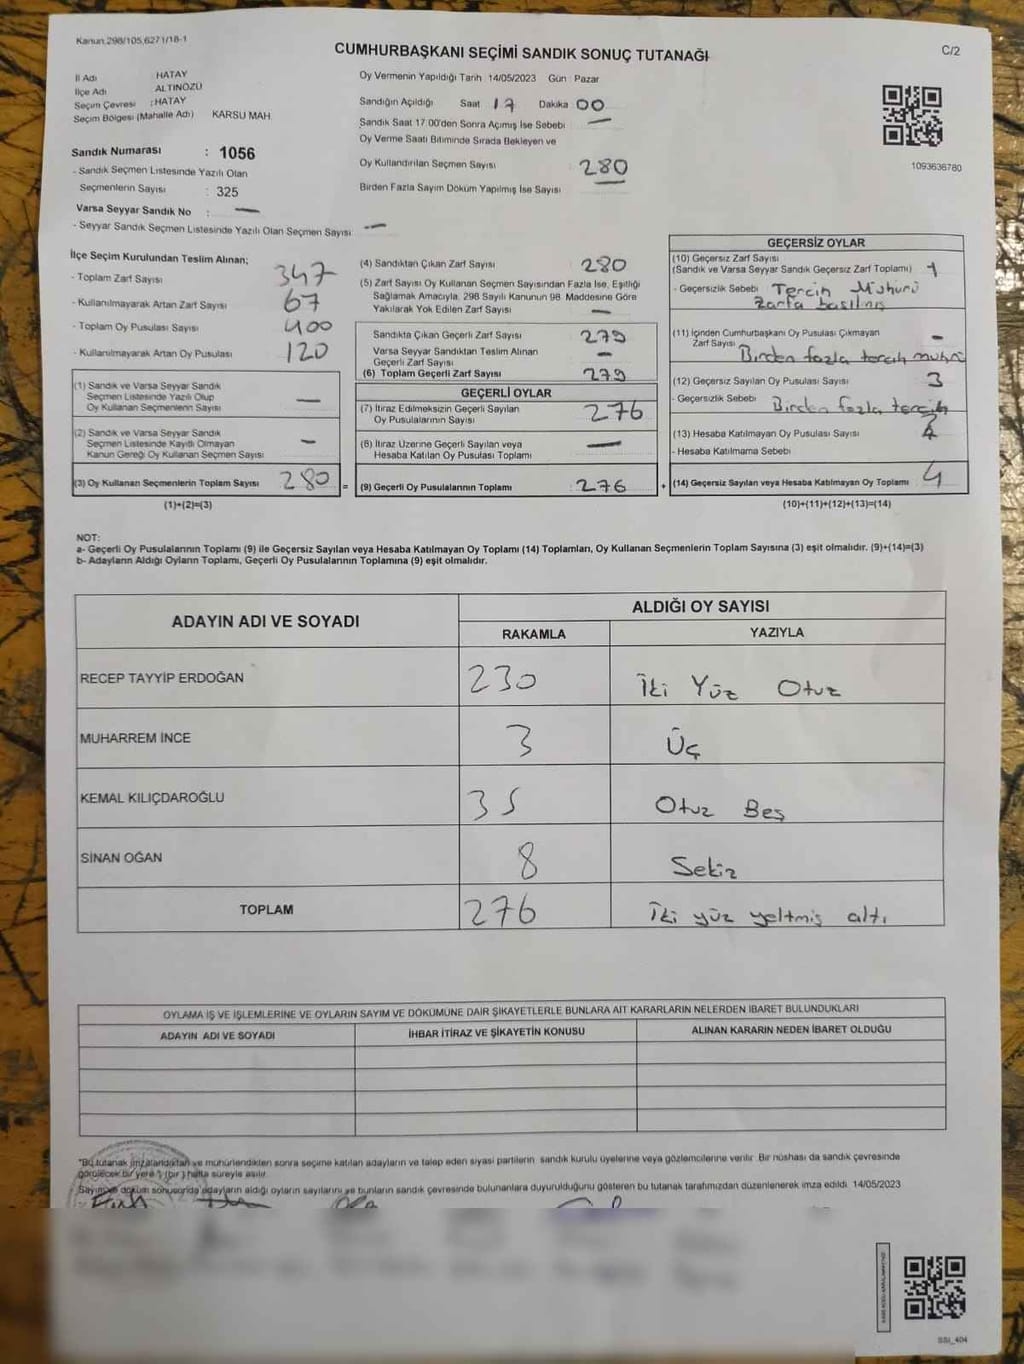 Kanun 298/105,6271/18-1
CUMHURBAŞKANI SEÇİMİ SANDIK SONUÇ TUTANAĞI
C/2
İl Adı HATAY
İlçe Adı ALTINÖZÜ
Seçim Çevresi : HATAY
Seçim Bölgesi (Mahalle Adı) KARSU MAH.
Sandık Numarası : 1056
- Sandık Seçmen Listesinde Yazılı Olan
Seçmenlerin Sayısı : 325
Varsa Seyyar Sandık No : —
- Seyyar Sandık Seçmen Listesinde Yazılı Olan Seçmen Sayısı: —
Oy Vermenin Yapıldığı Tarih 14/05/2023 Gün : Pazar
Sandığın Açıldığı Saat 17 Dakika 00
Sandık Saat 17.00'den Sonra Açımış İse Sebebi —
Oy Verme Saati Bitiminde Sırada Bekleyen ve
Oy Kullandırılan Seçmen Sayısı : 280
Birden Fazla Sayım Döküm Yapılmış İse Sayısı :
1093636780
İlçe Seçim Kurulundan Teslim Alınan;
- Toplam Zarf Sayısı : 347
- Kullanılmayarak Artan Zarf Sayısı : 67
- Toplam Oy Pusulası Sayısı : 400
- Kullanılmayarak Artan Oy Pusulası : 120
(1) Sandık ve Varsa Seyyar Sandık
Seçmen Listesinde Yazılı Olup
Oy Kullanan Seçmenlerin Sayısı : —
(2) Sandık ve Varsa Seyyar Sandık
Seçmen Listesinde Kayıtlı Olmayan
Kanun Gereği Oy Kullanan Seçmen Sayısı : —
(3) Oy Kullanan Seçmenlerin Toplam Sayısı : 280 =
(1)+(2)=(3)
(4) Sandıktan Çıkan Zarf Sayısı : 280
(5) Zarf Sayısı Oy Kullanan Seçmen Sayısından Fazla İse, Eşitliği
Sağlamak Amacıyla, 298 Sayılı Kanunun 98. Maddesine Göre
Yakılarak Yok Edilen Zarf Sayısı : —
Sandıkta Çıkan Geçerli Zarf Sayısı : 279
Varsa Seyyar Sandıktan Teslim Alınan
Geçerli Zarf Sayısı : —
(6) Toplam Geçerli Zarf Sayısı : 279
GEÇERLİ OYLAR
(7) İtiraz Edilmeksizin Geçerli Sayılan
Oy Pusulalarının Sayısı : 276
(8) İtiraz Üzerine Geçerli Sayılan veya
Hesaba Katılan Oy Pusulası Toplamı : —
(9) Geçerli Oy Pusulalarının Toplamı : 276 +
GEÇERSİZ OYLAR
(10) Geçersiz Zarf Sayısı
(Sandık ve Varsa Seyyar Sandık Geçersiz Zarf Toplamı) : 1
- Geçersizlik Sebebi : Tercih Mühürü
zarfa basılmış
(11) İçinden Cumhurbaşkanı Oy Pusulası Çıkmayan
Zarf Sayısı : —
Birden fazla tercih mührü
(12) Geçersiz Sayılan Oy Pusulası Sayısı : 3
- Geçersizlik Sebebi : Birden fazla tercih
(13) Hesaba Katılmayan Oy Pusulası Sayısı :
- Hesaba Katılmama Sebebi :
(14) Geçersiz Sayılan veya Hesaba Katılmayan Oy Toplamı : 4
(10)+(11)+(12)+(13)=(14)
NOT:
a- Geçerli Oy Pusulalarının Toplamı (9) ile Geçersiz Sayılan veya Hesaba Katılmayan Oy Toplamı (14) Toplamları, Oy Kullanan Seçmenlerin Toplam Sayısına (3) eşit olmalıdır. (9)+(14)=(3)
b- Adayların Aldığı Oyların Toplamı, Geçerli Oy Pusulalarının Toplamına (9) eşit olmalıdır.
ADAYIN ADI VE SOYADI
ALDIĞI OY SAYISI
RAKAMLA YAZIYLA
RECEP TAYYİP ERDOĞAN 230 İki Yüz Otuz
MUHARREM İNCE 3 Üç
KEMAL KILIÇDAROĞLU 35 Otuz Beş
SİNAN OĞAN 8 Sekiz
TOPLAM 276 İki yüz yeltmiş altı
OYLAMA İŞ VE İŞLEMLERİNE VE OYLARIN SAYIM VE DÖKÜMÜNE DAİR ŞİKAYETLERLE BUNLARA AİT KARARLARIN NELERDEN İBARET BULUNDUKLARI
ADAYIN ADI VE SOYADI İHBAR İTİRAZ VE ŞİKAYETİN KONUSU ALINAN KARARIN NEDEN İBARET OLDUĞU
*Bu tutanak imzalandıktan ve mühürlendikten sonra seçime katılan adayların ve talep eden siyasi partilerin sandık kurulu üyelerine veya gözlemcilerine verilir. Bir nüshası da sandık çevresinde
görülecek bir yere 1 (bir) hafta süreyle asılır.
Sayım ve döküm sonucunda adayların aldığı oyların sayılarını ve bunların sandık çevresinde bulunanlara duyurulduğunu gösteren bu tutanak tarafımızdan düzenlenerek imza edildi. 14/05/2023
SSI_404